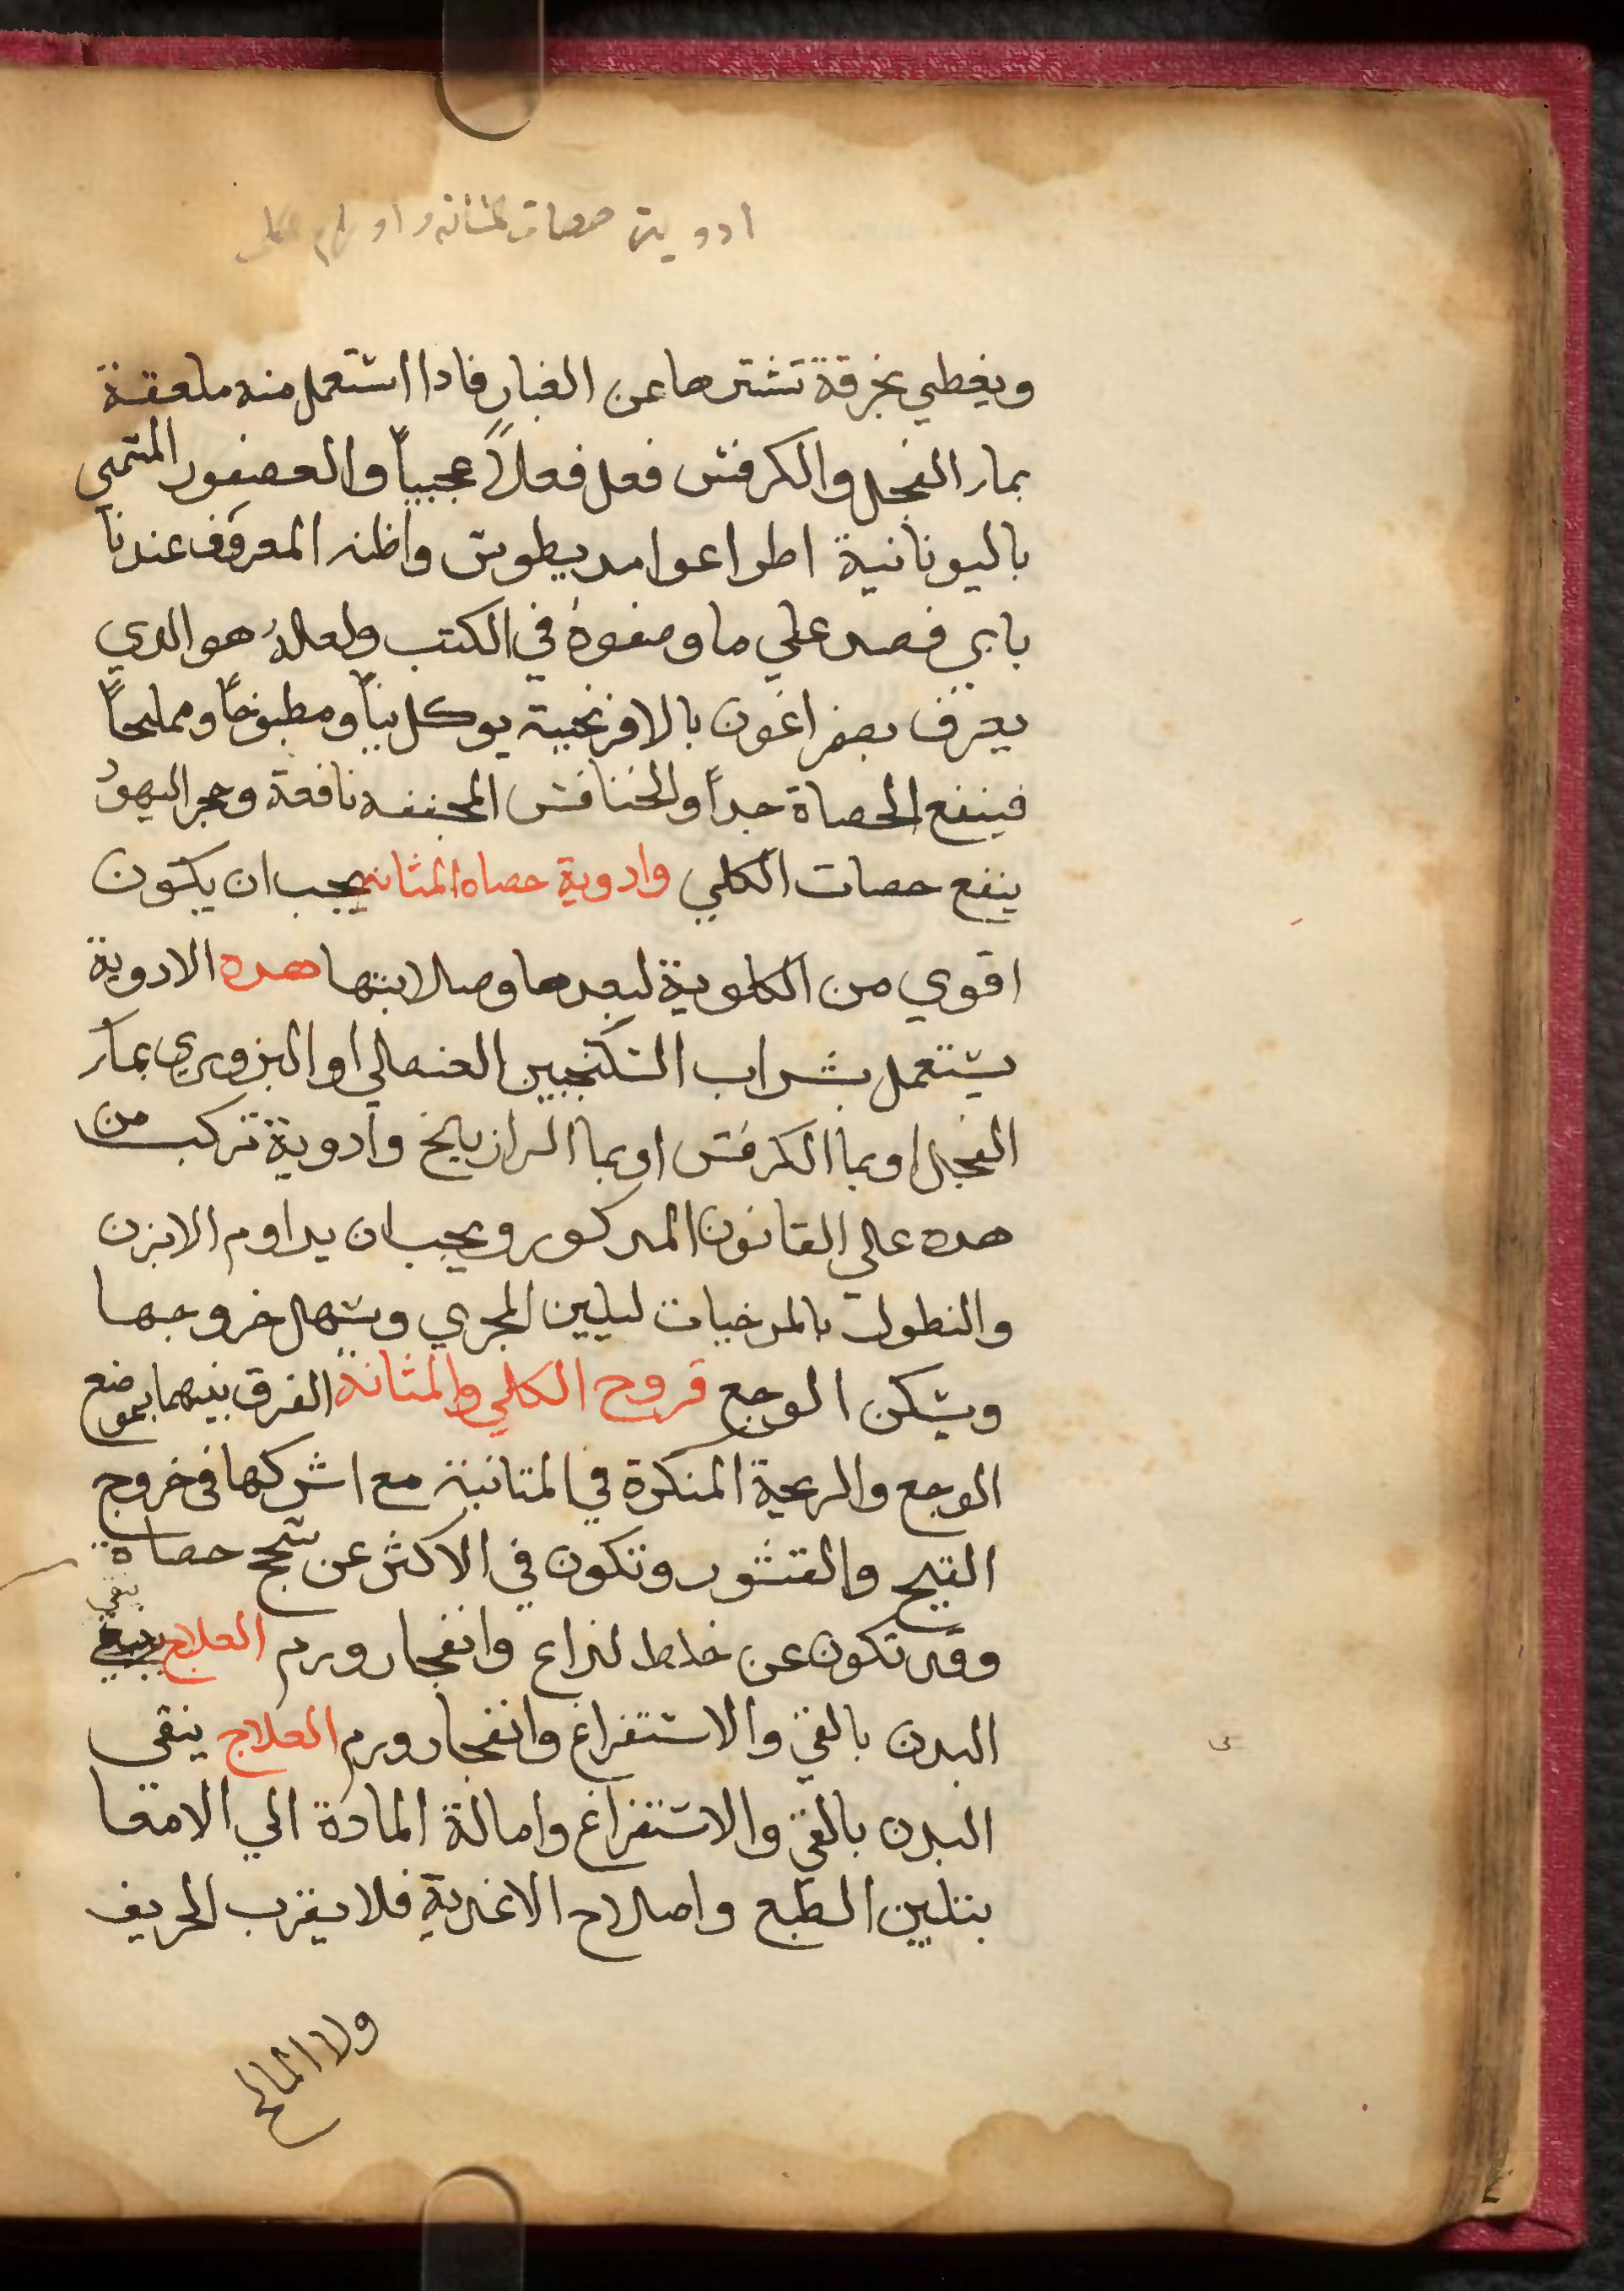 ادوية حصات المثانه واورام الكلى
ويغطي بخرقة تشترها عن الغبار فادا اشتعمل منه ملعقة
بمار الفجل والكرفش فعل فعلاً عجيباً والعصفور المتمي
باليونانية اطراعوامديطوش واظنه المعروف عندنا
بابي فصد علي ما وصفوهُ في الكتب ولعلهُ هو الدي
يعرف بصفراغون بالافرنجية يوكل نياً ومطبوخاً ومملحاً
فينفع الحصاة جداً والخنافش المجففه نافعة وحجر اليهود
ينفع حصات الكلي وادوية حصاه المثانه يجب ان يكون
اقوي من الكلوية لبعدها وصلابتها هده الادوية
يشتعمل بشراب الشكنجبين العنصلي او البزوري بمار
الفجل او بما الكرفش او بما الرازيانج وادوية تركب من
هده علي القانون المدكور ويجب ان يداوم الابزن
والنطول بالمرخيات ليلين المجري ويشهل خروجها
ويشكن الوجع قروح الكلي والمثانة الفرق بينهما بموضع
الوجع والريحة المنكرة في المتانية مع اشركها في خروج
القيح والقشور وتكون في الاكثر عن شحج حصاة
وقد تكون عن خلط لداع وانفجار ورم العلاج ينقي
البدن بالقي والاشتفراغ وانفجار ورم العلاج ينقي
البدن بالقي والاشتفراغ وامالة المادة الي الامعا
بتليين الطبع واصلاح الاغدية فلا يقرب الحريف
ولا المالح